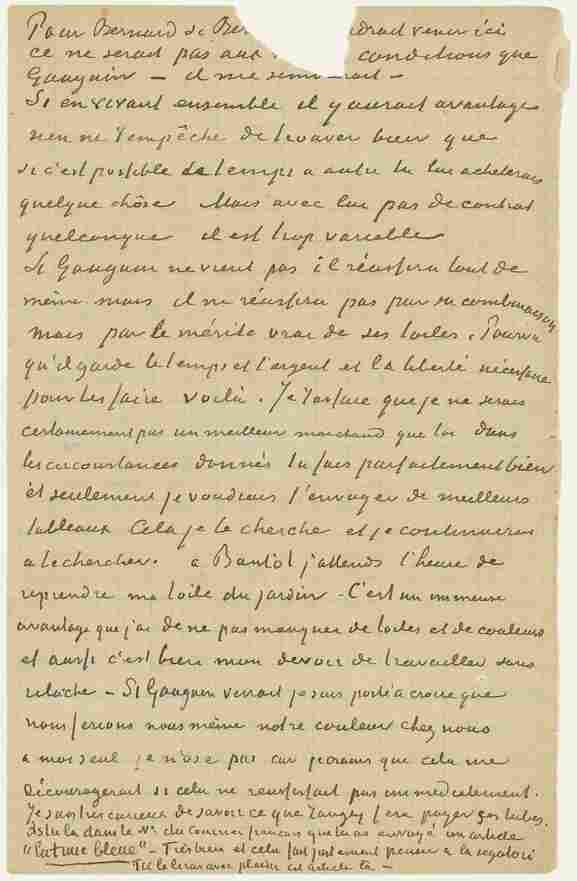 Pour Bernard si Ber drait venir ici
ce ne serait pas aux conditions que
Gauguin – il me sem rait –
Si en vivant ensemble il y aurait avantage
rien ne t'empêche de trouver bien que
si c'est possible de temps a autre tu lui acheterais
quelque chôse Mais avec lui pas de contrat
quelconque il est trop variable
Si Gauguin ne vient pas il réussira tout de
même mais il ne réussira pas par sa combinaison
mais par le mérite vrai de ses toiles. Pourvu
qu'il garde le temps et l'argent et la liberté nécessaire
pour les faire voilà. Je t'assure que je ne serais
certainement pas un meilleur marchand que toi dans
les circonstances donnés tu fais parfaitement bien
et seulement je voudrais t'envoyer de meilleurs
tableaux Cela je le cherche et je continuerai
a le chercher. a Bantôt j'attends l'heure de
reprendre ma toile du jardin – C'est un immense
avantage que j'ai de ne pas manquer de toiles et de couleurs
et aussi c'est bien mon devoir de travailler sans
relache – Si Gauguin venait je suis porté a croire que
nous ferions nous même notre couleur chez nous
a moi seul je n'ose pas car je crains que cela me
découragerait si cela ne reussissait pas immediatement.
Je suis tres curieux de savoir ce que Tanguy fera payer ses tubes.
As tu lu dans le No. du Courrier français que tu as envoyé un article
"l'atinée bleue" – Tres bien et cela fait justement penser a la segatori
Tu le liras avec plaisir cet article là –